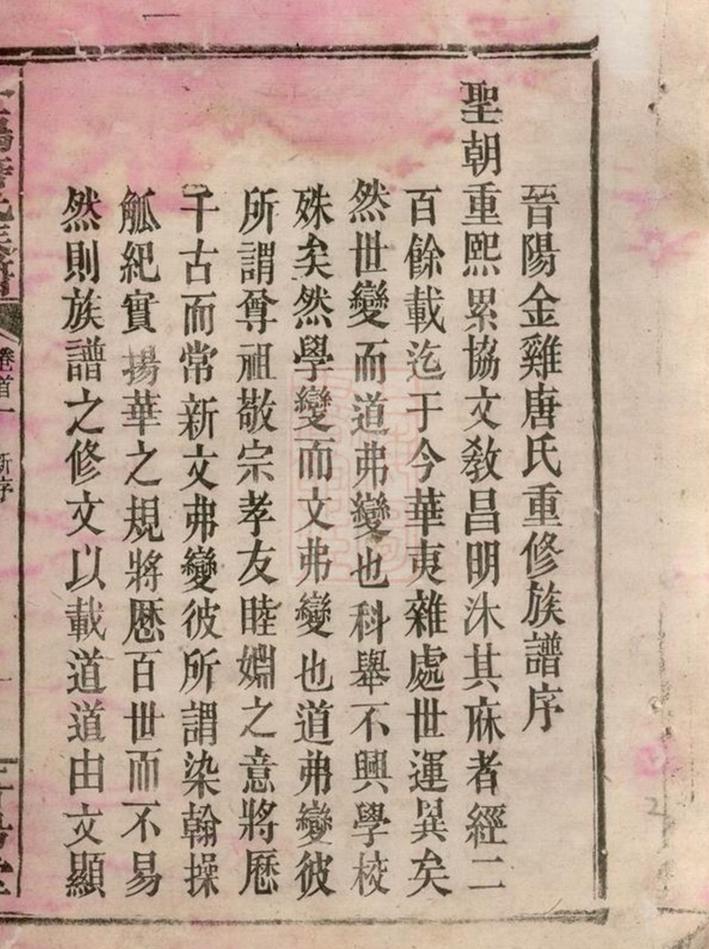 晉陽金雞唐氏重修族譜序
聖朝重熙累協文敎昌明沐其庥者經二
百餘載迄于今華夷雜處世運異矣
然世變而道弗變也科舉不興學校
殊矣然學變而文弗變也道弗變彼
所謂尊祖敬宗孝友睦婣之意將歷
千古而常新文弗變彼所謂染翰操
觚紀實揚華之規將歷百世而不易
然則族譜之修文以載道道由文顯
卷首一 新序